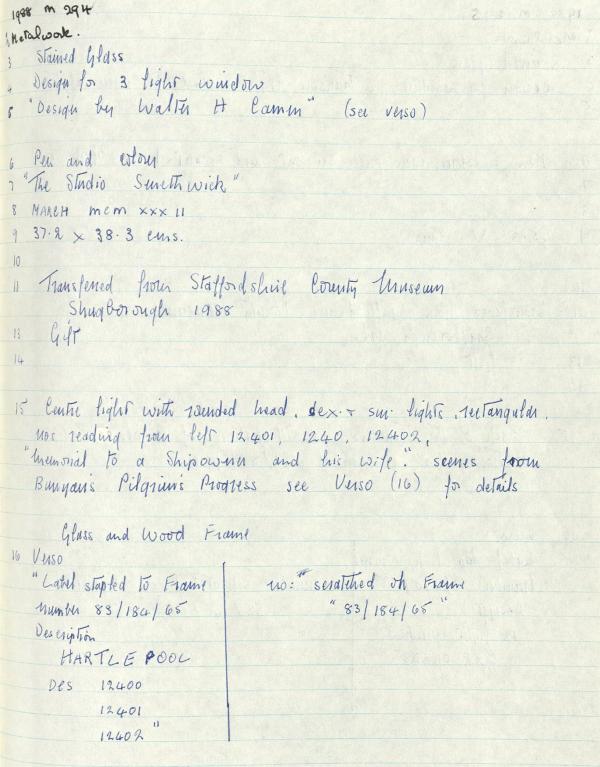 1988 M 294
1 Metalwork.
3 Stained Glass
4 Design for 3 light window
5 "Design by Walter H Camm" (see verso)
6 Pen and colour
7 "The Studio Smethwick"
8 MARCH mcm xxx ii
9 37.2 x 38.3 cms.
10
11 Transferred from Staffordshire County Museum
Shugborough 1988
13 Gift
14
15 Centre light with rounded head. dex. + sin. lights, rectangular.
nos reading from left 12401, 1240, 12402,
"Memorial to a Shipowner and his wife." scenes from
Bunyan's Pilgrim's Progress see Verso (16) for details
Glass and Wood Frame
16 Verso
"Label stapled to Frame
number 83/184/65
Description
HARTLEPOOL
Des 12400
12401
12402"
no: "scratched on Frame
"83/184/65"